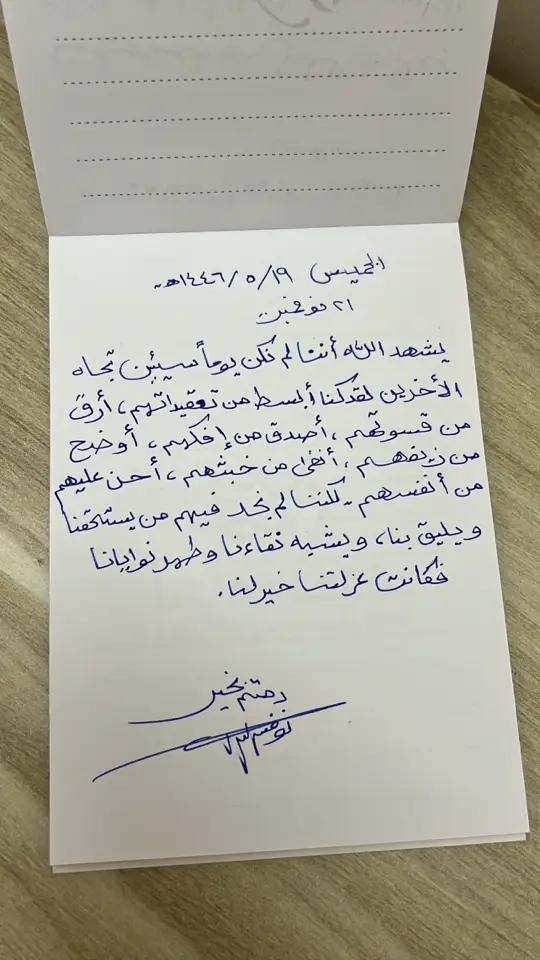 الخميس ١٩/ ٥/ ١٤٤٦هـ
٢١ نوفمبر
يشهد الله أننا لم نكن يوماً سيئين تجاه
الأخرين لقد كنا أبسط من تعقيداتهم، أرق
من قسوتهم، أصدق من إفكهم، أوضح
من زيفهم، أنقى من خبثهم، أحن عليهم
من أنفسهم. لكننا لم نجد فيهم من يستحقنا
ويليق بنا، ويشبه نقاءنا وطهر نوايانا
فكانت عزلتنا خير لنا.
دمتم بخير